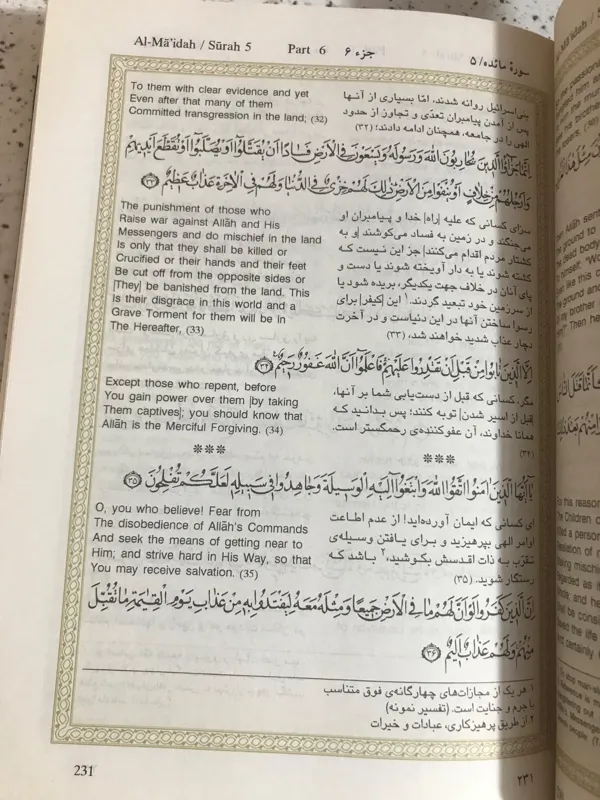 Al-Mā'idah / Sūrah 5   Part 6   جزء ۶   سورهٔ مائده/ ۵
To them with clear evidence and yet
Even after that many of them
Committed transgression in the land; (32)
بنی‌اسرائیل روانه شدند، امّا بسیاری از آنها
پس از آمدن پیامبران تعدّی و تجاوز از حدود
الهی را در جامعه، همچنان ادامه دادند؛ (۳۲)
إِنَّمَا جَزَاؤُا الَّذِينَ يُحَارِبُونَ اللَّهَ وَرَسُولَهُ وَيَسْعَوْنَ فِي الْأَرْضِ فَسَادًا أَنْ يُقَتَّلُوا أَوْ يُصَلَّبُوا أَوْ تُقَطَّعَ أَيْدِيهِمْ
وَأَرْجُلُهُمْ مِنْ خِلَافٍ أَوْ يُنْفَوْا مِنَ الْأَرْضِ ذَلِكَ لَهُمْ خِزْيٌ فِي الدُّنْيَا وَلَهُمْ فِي الْآخِرَةِ عَذَابٌ عَظِيمٌ ﴿۳۳﴾
The punishment of those who
Raise war against Allāh and His
Messengers and do mischief in the land
Is only that they shall be killed or
Crucified or their hands and their feet
Be cut off from the opposite sides or
|They| be banished from the land. This
Is their disgrace in this world and a
Grave Torment for them will be in
The Hereafter, (33)
سزای کسانی که علیه |راه| خدا و پیامبران او
می‌جنگند و در زمین به فساد می‌کوشند |و به
کشتار مردم اقدام می‌کنند| جز این نیست که
کشته شوند یا به دار آویخته شوند یا دست و
پای آنان در خلاف جهت یکدیگر، بریده شود یا
از سرزمین خود تبعید گردند.۱ این |کیفر| برای
رسوا ساختن آنها در این دنیاست و در آخرت
دچار عذاب شدید خواهند شد، (۳۳)
إِلَّا الَّذِينَ تَابُوا مِنْ قَبْلِ أَنْ تَقْدِرُوا عَلَيْهِمْ فَاعْلَمُوا أَنَّ اللَّهَ غَفُورٌ رَحِيمٌ ﴿۳۴﴾
Except those who repent, before
You gain power over them |by taking
Them captives|; you should know that
Allāh is the Merciful Forgiving. (34)
مگر، کسانی که قبل از دست‌یابی شما بر آنها،
|قبل از اسیر شدن| توبه کنند؛ پس بدانید که
همانا خداوند، آن عفوکننده‌ی رحمگستر است.
(۳۴)
***   ***
يَا أَيُّهَا الَّذِينَ آمَنُوا اتَّقُوا اللَّهَ وَابْتَغُوا إِلَيْهِ الْوَسِيلَةَ وَجَاهِدُوا فِي سَبِيلِهِ لَعَلَّكُمْ تُفْلِحُونَ ﴿۳۵﴾
O, you who believe! Fear from
The disobedience of Allāh's Commands
And seek the means of getting near to
Him; and strive hard in His Way, so that
You may receive salvation. (35)
ای کسانی که ایمان آورده‌اید! از عدم اطاعت
اوامر الهی بپرهیزید و برای یافتن وسیله‌ی
تقرّب به ذات اقدسش بکوشید،۲ باشد که
رستگار شوید. (۳۵)
إِنَّ الَّذِينَ كَفَرُوا لَوْ أَنَّ لَهُمْ مَا فِي الْأَرْضِ جَمِيعًا وَمِثْلَهُ مَعَهُ لِيَفْتَدُوا بِهِ مِنْ عَذَابِ يَوْمِ الْقِيَامَةِ مَا تُقُبِّلَ
مِنْهُمْ وَلَهُمْ عَذَابٌ أَلِيمٌ ﴿۳۶﴾
۱ هر یک از مجازات‌های چهارگانه‌ی فوق متناسب
با جرم و جنایت است. (تفسیر نمونه)
۲ از طریق پرهیزکاری، عبادات و خیرات
231   ۲۳۱